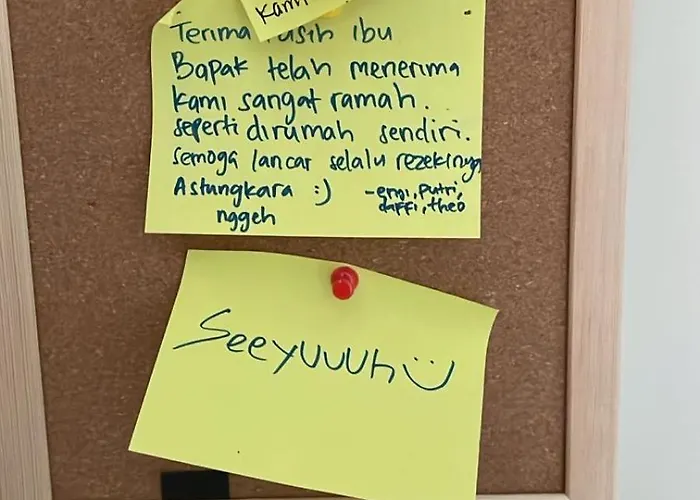 kami
Terima kasih ibu
Bapak telah menerima
kami sangat ramah.
seperti dirumah sendiri.
semoga lancar selalu rezekinya
Astungkara :)
nggeh
-engi, Putri,
daffi, theo
Seeyuuuh :)